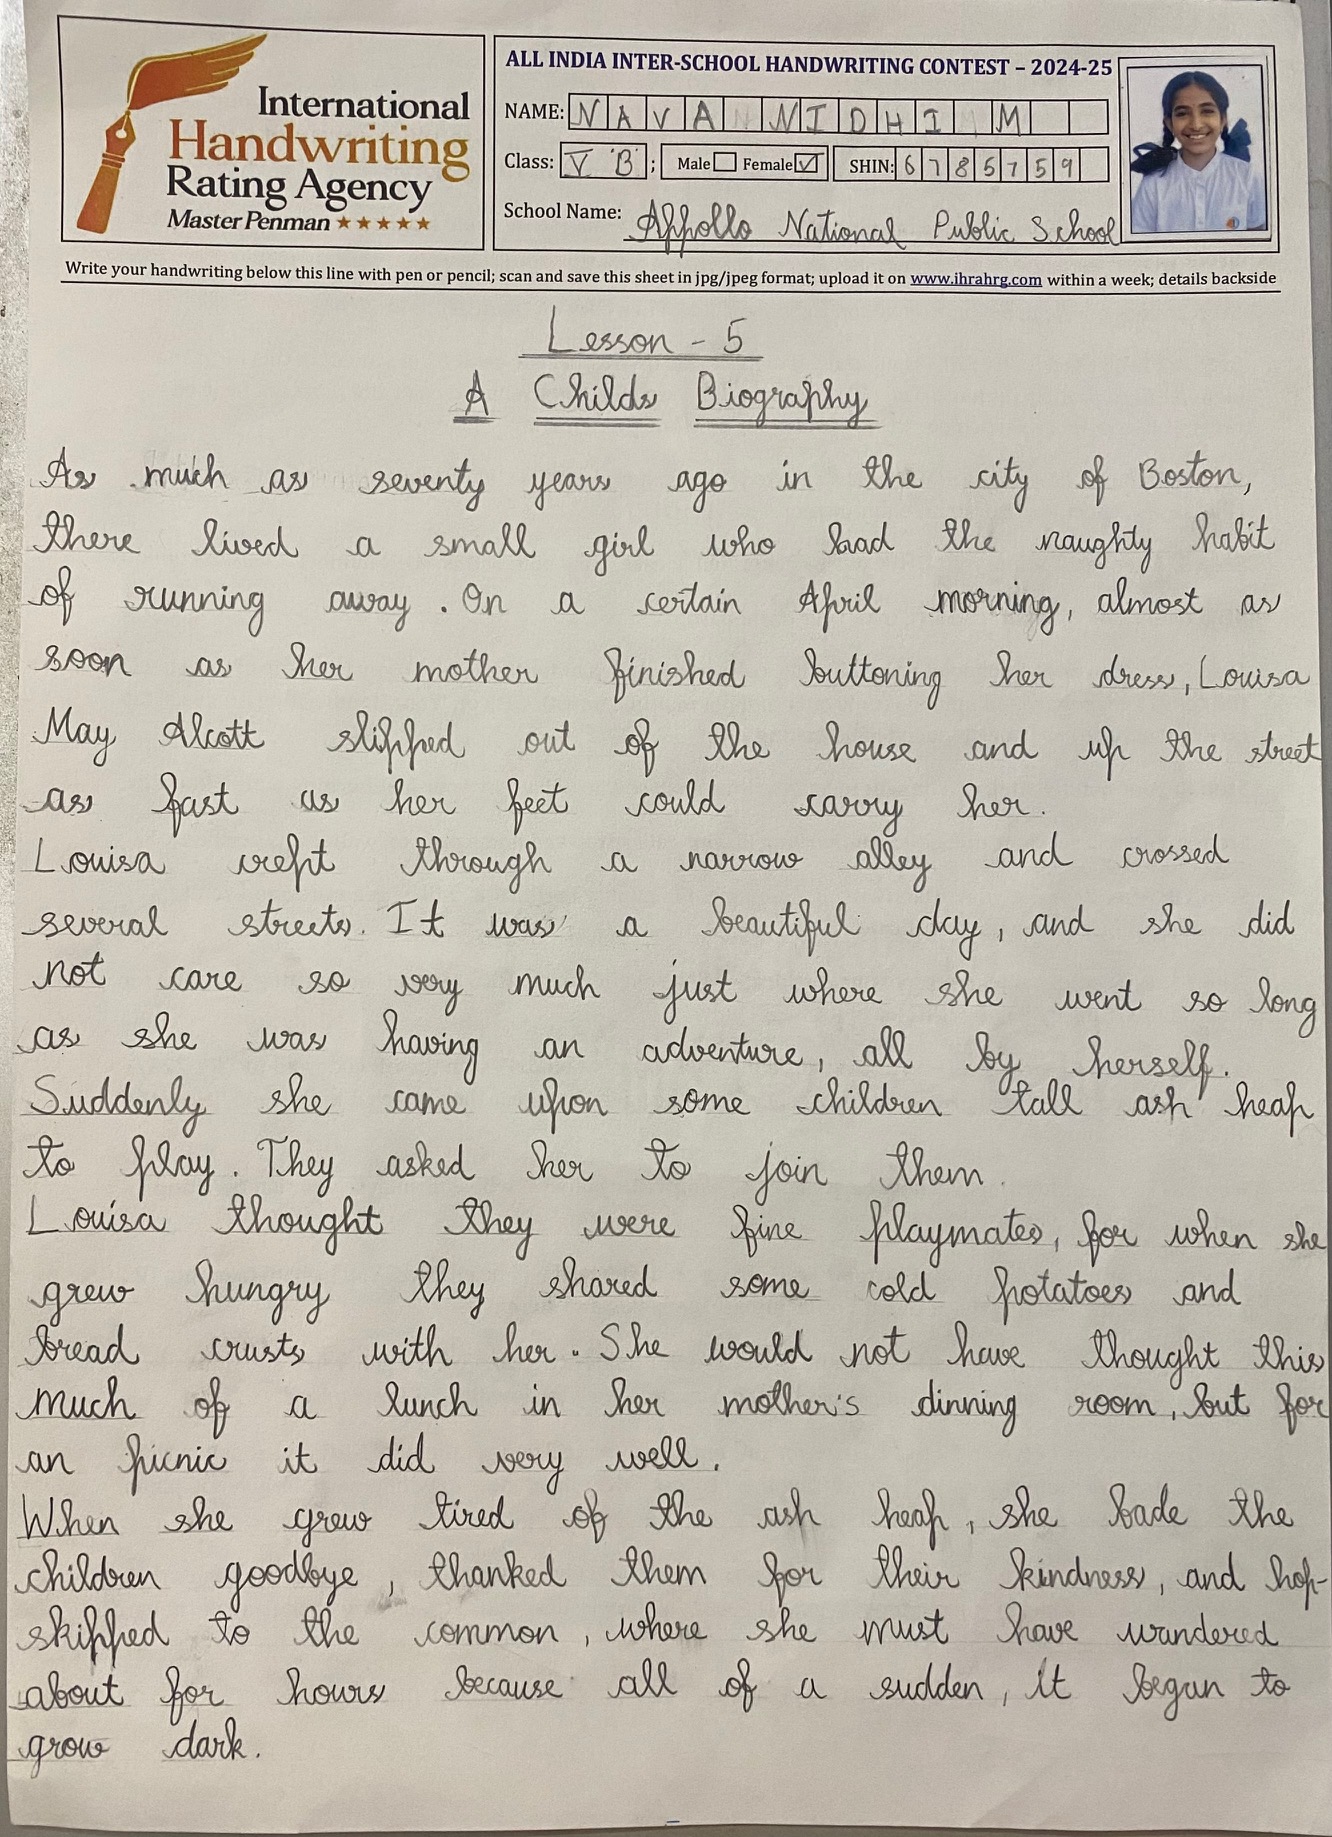 International
Handwriting
Rating Agency
Master Penman ★★★★★
ALL INDIA INTER-SCHOOL HANDWRITING CONTEST – 2024-25
NAME: NAVA NIDHI M
Class: V 'B' ; Male Female ✓ SHIN: 6785759
School Name: Appollo National Public School
Write your handwriting below this line with pen or pencil; scan and save this sheet in jpg/jpeg format; upload it on www.ihrahrg.com within a week; details backside
Lesson - 5
A Childs Biography
As much as seventy years ago in the city of Boston,
there lived a small girl who had the naughty habit
of running away. On a certain April morning, almost as
soon as her mother finished buttoning her dress, Louisa
May Alcott slipped out of the house and up the street
as fast as her feet could carry her.
Louisa crept through a narrow alley and crossed
several streets. It was a beautiful day, and she did
not care so very much just where she went so long
as she was having an adventure, all by herself.
Suddenly she came upon some children tall ash heap
to play. They asked her to join them.
Louisa thought they were fine playmates, for when she
grew hungry they shared some cold potatoes and
bread crusts with her. She would not have thought this
much of a lunch in her mother's dinning room, but for
an picnic it did very well.
When she grew tired of the ash heap, she bade the
children goodbye, thanked them for their kindness, and hop-
skipped to the common, where she must have wandered
about for hours because all of a sudden, it began to
grow dark.